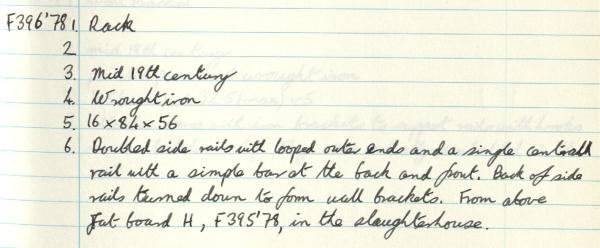 F396'78 1. Rack
2
3. Mid 19th century
4. Wrought iron
5. 16 x 84 x 56
6. Doubled side rails with looped outer ends and a single central
rail with a simple bar at the back and front. Back of side
rails turned down to form wall brackets. From above
Fat board H, F395'78, in the slaughterhouse.